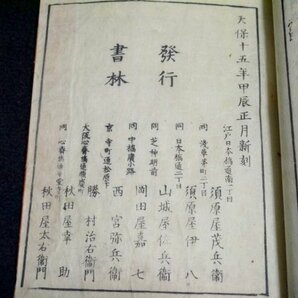 天保十五年甲辰正月新刻
發行
書林
江戸日本橋通南一丁目
須原屋茂兵衛
同 浅草茅町二丁目
須原屋伊八
同 日本橋通二丁目
山城屋佐兵衛
同 芝神明前
岡田屋嘉七
同 中橋廣小路
西宮弥兵衛
京 寺町通松原下
勝村治右衛門
大阪心齋橋通
秋田屋幸助
同 心齋橋
秋田屋太右衛門